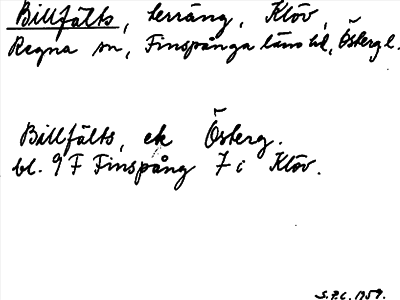 Billfälts, terräng, Klöv,
Regna sn, Finspånga läns hd, Östergl.
Billfälts, ek Österg.
bl. 9 F Finspång 7 i Klöv.
S.F.C. 1959.